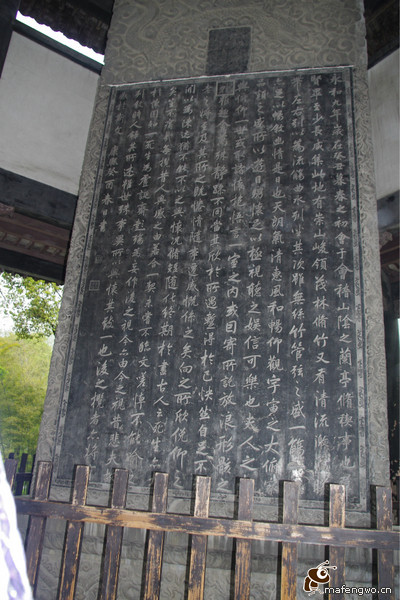 和九年歲在癸丑暮春之初會于會稽山陰之蘭亭脩禊事也
賢畢至少長咸集此地有崇山峻領茂林脩竹又有清流激湍映
帶左右引以為流觴曲水列坐其次雖無絲竹管弦之盛一觴一
詠亦足以暢敘幽情是日也天朗氣清惠風和暢仰觀宇宙之大俯
察品類之盛所以遊目騁懷足以極視聽之娛信可樂也夫人之
相與俯仰一世或取諸懷抱悟言一室之內或因寄所託放浪形骸
之外雖趣舍萬殊靜躁不同當其欣於所遇蹔得於己快然自足不
知老之將至及其所之既惓情隨事遷感慨係之矣向之所欣俛仰之
間以為陳迹猶不能不以之興懷況脩短隨化終期於盡古人云死生亦
大矣豈不痛哉每攬昔人興感之由若合一契未嘗不臨文嗟悼不能喻
之於懷固知一死生為虛誕齊彭殤為妄作後之視今亦由今之視昔悲夫故
列敘時人錄其所述雖世殊事異所以興懷其致一也後之攬者亦將
康熙癸酉春日書
mafengwo.cn